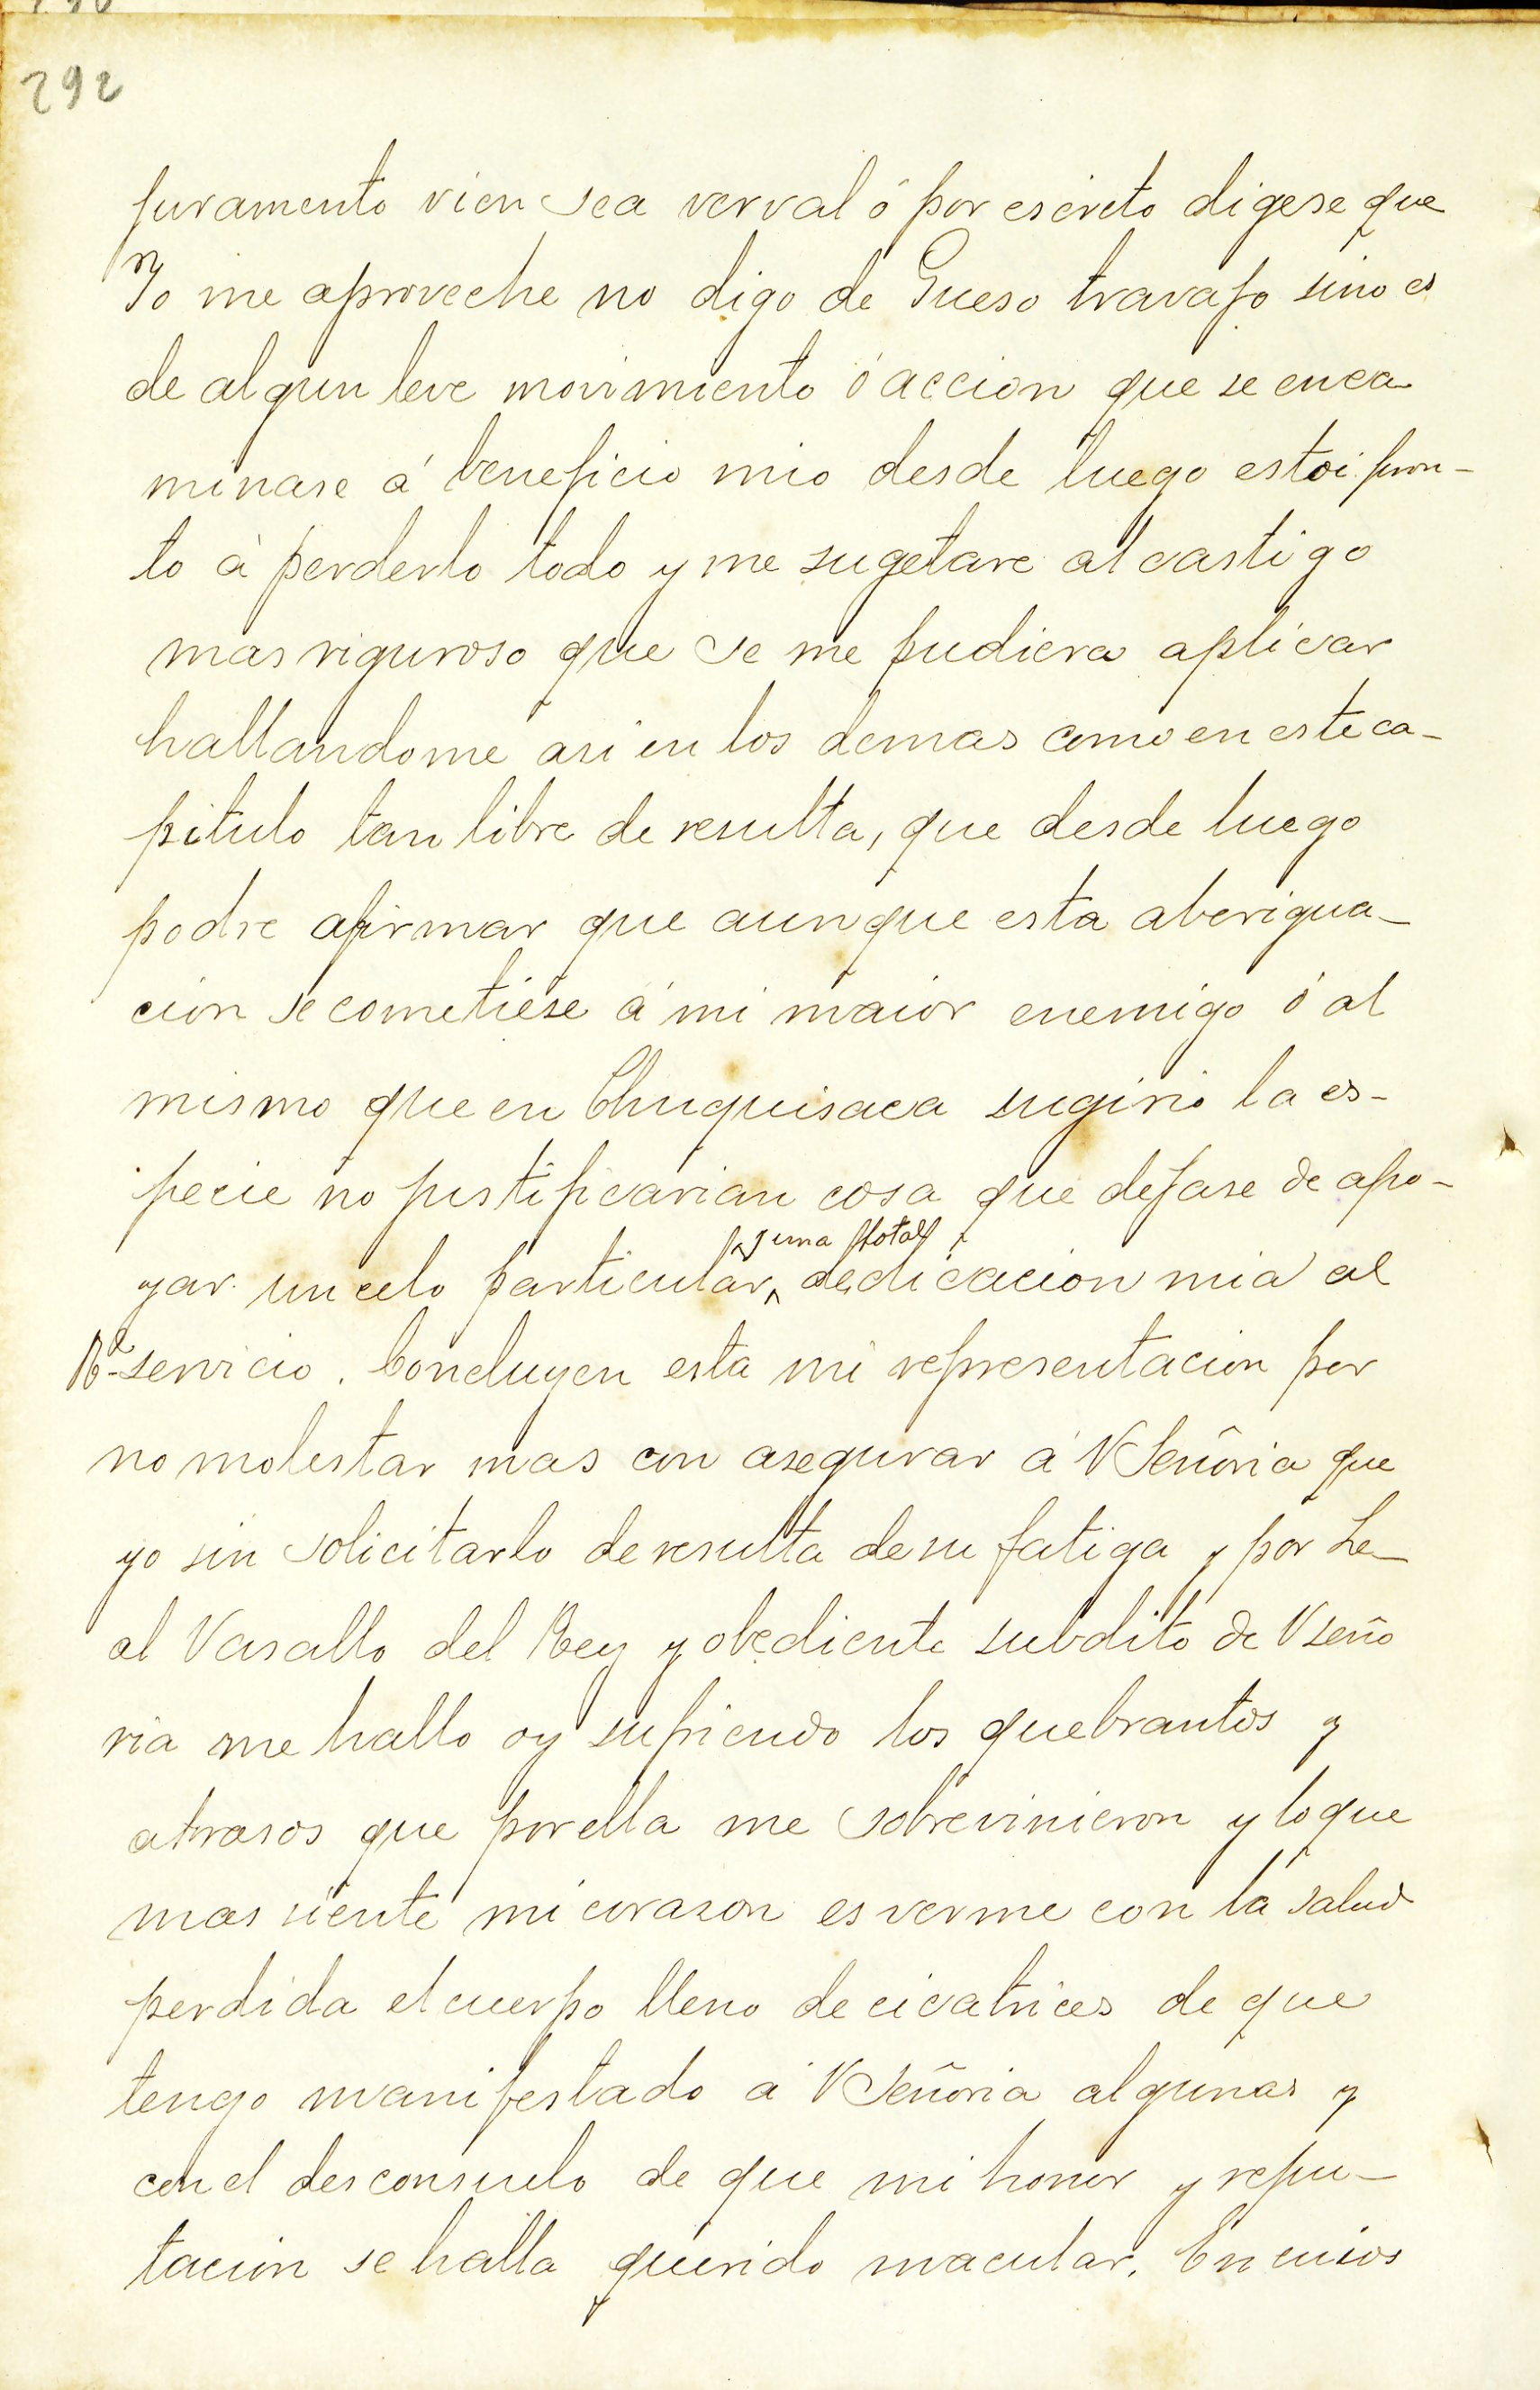 292
juramento vien sea verval ó por escreto digese que
Yo me aproveche no digo de Gueso travajo sino es
de algun leve movimiento ó accion que se enca
minase á beneficio mio desde luego estoi pron-
to à perderlo todo y me sugetare al castigo
mas riguroso que se me pudiera aplicar
hallandome asi en los demas como en este ca-
pitulo tan libre de resulta, que desde luego
podre afirmar que aunque esta aberigua-
cion se cometiese á mi maior enemigo ó al
mismo que en Chuquisaca sugirio la es-
pecie no justificarian cosa que dejase de apo-
y una total
yar un celo particular dedicacion mia al
Rl servicio. Concluyen esta mi representacion por
no molestar mas con asegurar á V Señoria que
yo sin solicitarlo de resulta de su fatiga y por Le-
al Vasallo del Rey y obediente subdito de V seño
ria me hallo oy sufriendo los quebrantos y
atrasos que por ella me sobrevinieron y lo que
mas siente mi corason es verme con la salud
perdida el cuerpo lleno de cicatrices de que
tengo manifestado á V Señoria algunas y
con el desconsuelo de que mi honor y repu-
tacion se halla querido macular. En cuios